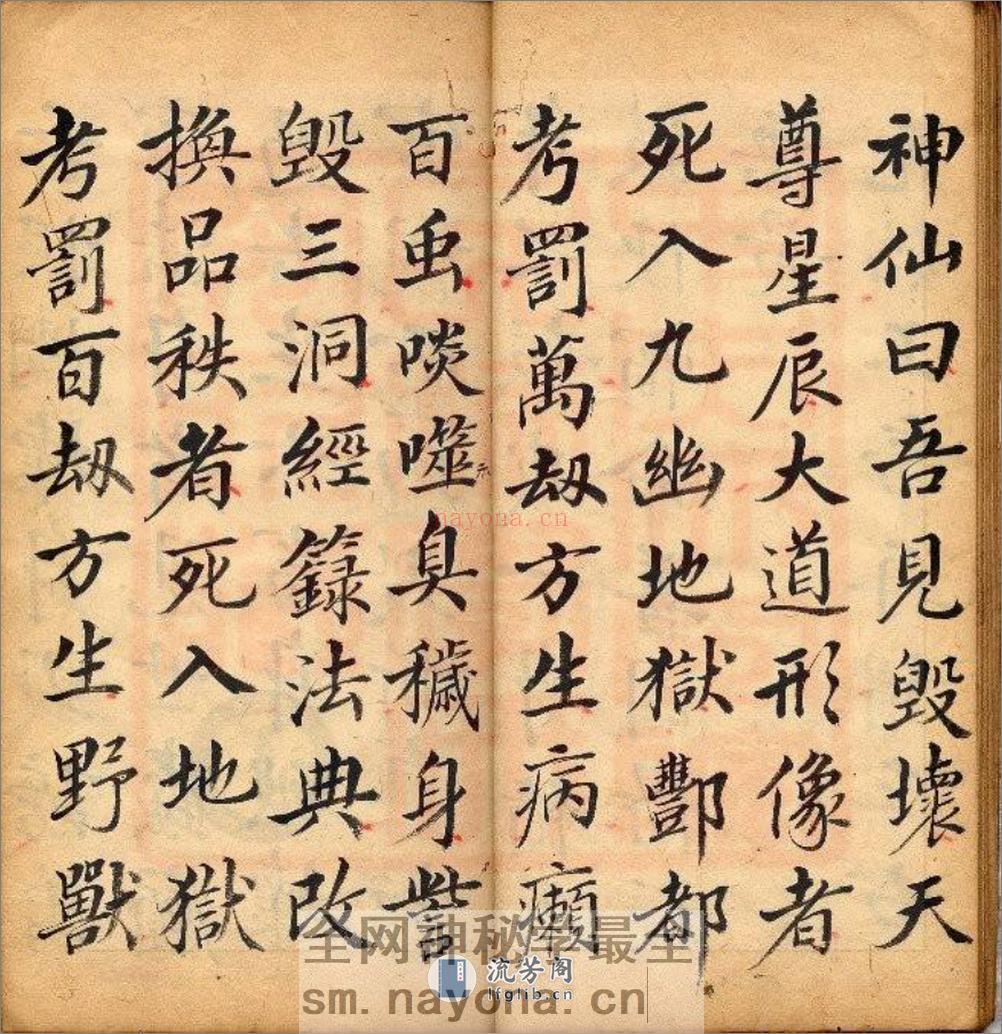 神仙曰吾見毀壞天
尊星辰大道形像者
死入九幽地獄酆都
考罰萬劫方生病癩
百虫啖噬臭穢身訾
毀三洞經籙法典改
換品秩者死入地獄
考罰百劫方生野獸
nayona.cn
全网神秘学最全
流芳阁
lfglib.cn
sm.nayona.cn